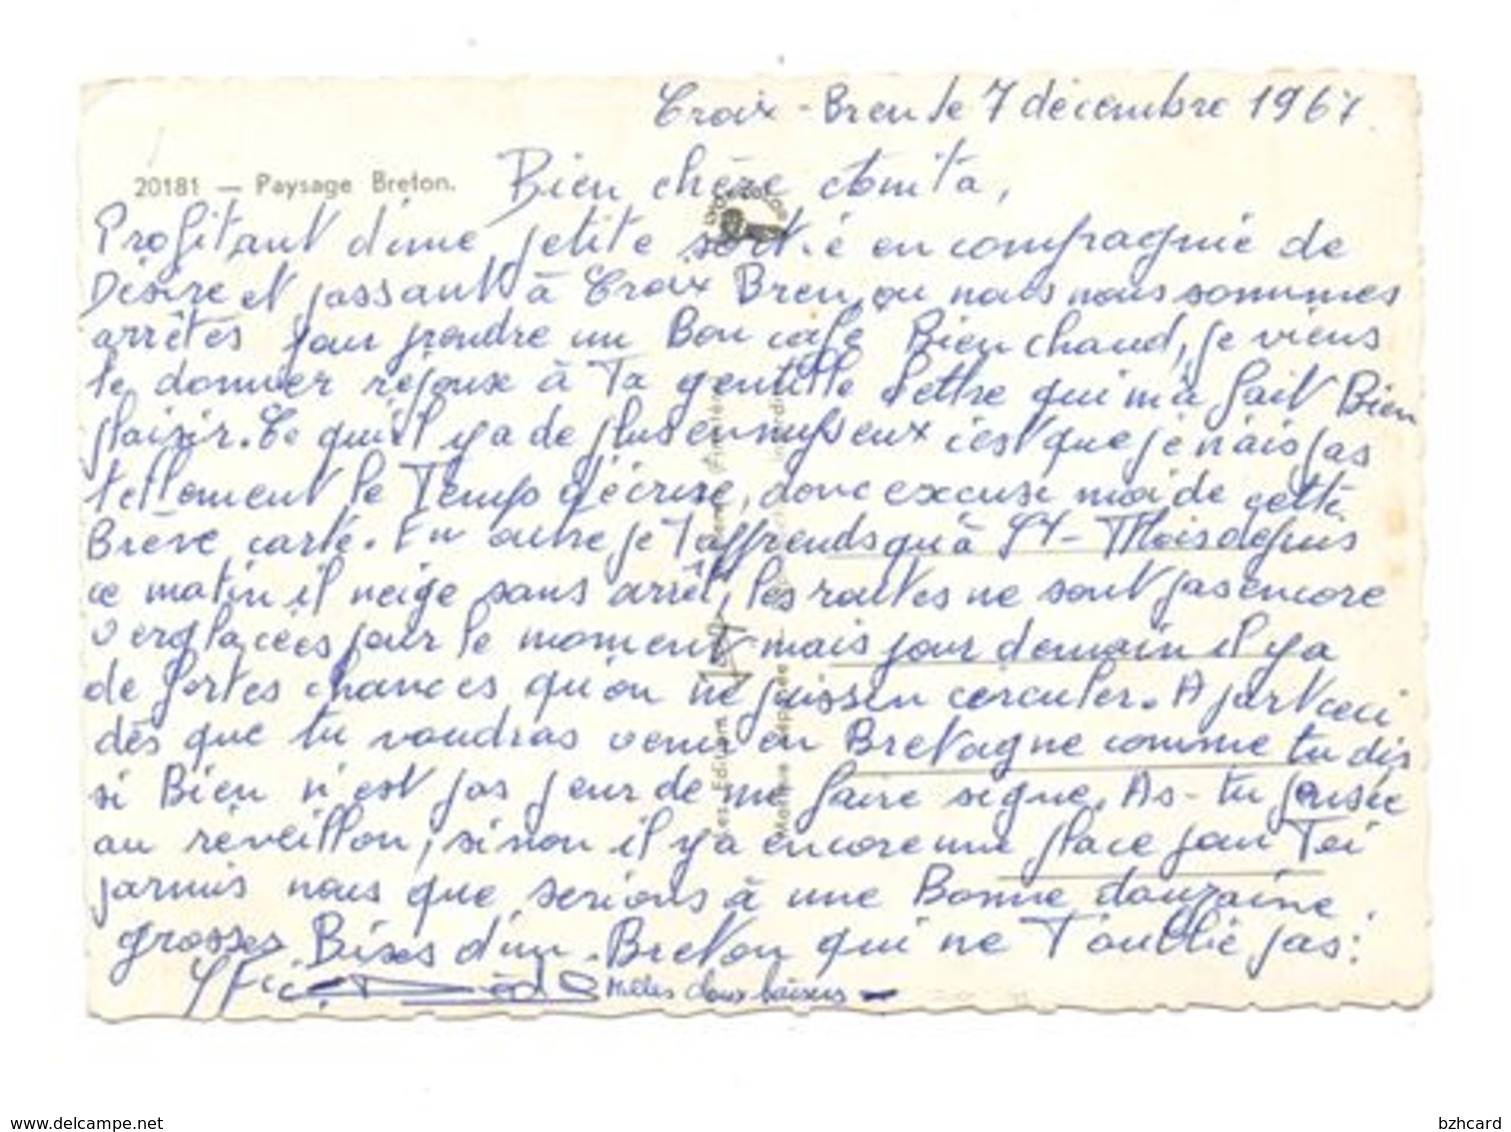 Croix-Breu le 7 décembre 1967.
20181 — Paysage Breton.
Bien chère Anita,
Profitant d'une petite sortie en compagnie de
Désiré et passant à Croix Breu, ou nous nous sommes
arrêtés pour prendre un Bon café Bien chaud, je viens
te donner réponse à Ta gentille lettre qui m'a fait Bien
plaisir. Ce qu'il y a de plus ennuyeux c'est que je n'ais pas
tellement le Temps d'écrire, donc excuse moi de cette
Brève carte. En outre je T'apprends qu'à St-Thois depuis
ce matin il neige sans arrêt, les routes ne sont pas encore
verglacées pour le moment mais pour demain il y a
de fortes chances qu'on ne puissen circuler. A part ceci
dès que tu voudras venir en Bretagne comme tu dis
si Bien n'est pas peur de me faire signe. As-tu pensée
au réveillon, sinon il y a encore une place pour Toi
parmis nous que serions à une Bonne douzaine.
grosses Bises d'un Breton qui ne T'oublie pas:
Milles doux baisers
Les Editions
(Finistère)
Marque déposée
interdite
delcampe.net
bzhcard